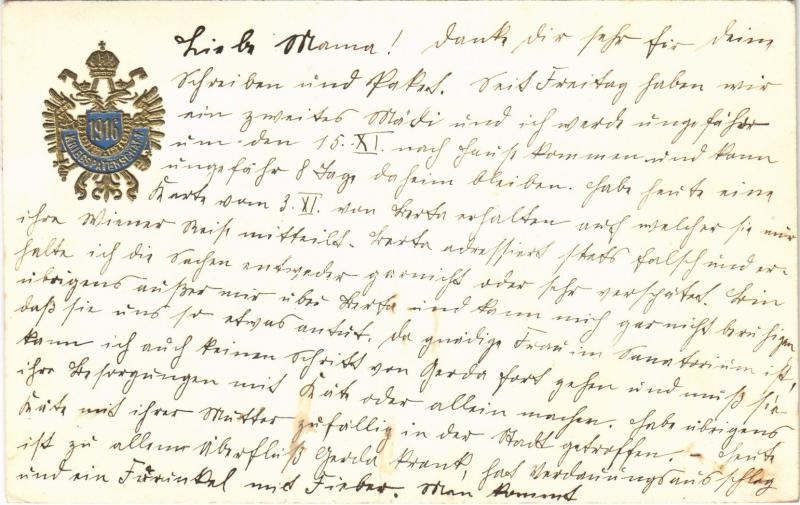 1916
KRIEGSPATENSCHAFT
Liebe Mama! Danke dir sehr für dein
Schreiben und Paket. Seit Freitag haben wir
ein zweites Mädi und ich werde ungefähr
um den 15. XI. nach Hause kommen und kann
ungefähr 8 Tage daheim bleiben. Habe heute eine
Karte vom 3. XI. von Berta erhalten auf welcher sie mir
ihre Wiener Reise mitteilt. Berta adressiert stets falsch und er-
halte ich die Sachen entweder garnicht oder sehr verspätet. Bin
übrigens außer mir über Berta und kann mich gar nicht beruhigen
daß sie uns so etwas antut. Da gnädige Frau im Sanatorium ist,
kann ich auch keinen Schritt von Gerda fort gehen und muß sie
ihre Besorgungen mit Käte oder allein machen. Habe übrigens
Käte mit ihrer Mutter zufällig in der Stadt getroffen. – Heute
ist zu allem Überfluß Gerda krank, hat Verdauungsausschlag
und ein Furunkel mit Fieber. Man kommt